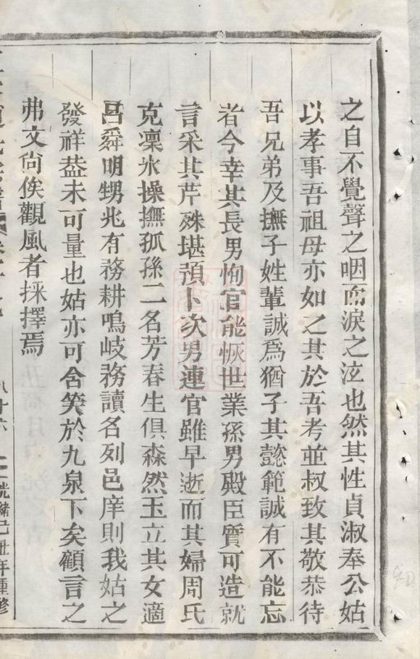 之自不覺聲之咽而淚之泣也然其性貞淑奉公姑
以孝事吾祖母亦如之其於吾考並叔致其敬恭待
吾兄弟及撫子姓輩誠為猶子其懿範誠有不能忘
者今幸其長男恂官能恢世業孫男殿臣質可造就
言采其芹殊堪預卜次男連官雖早逝而其婦周氏
克凜氷操撫孤孫二名芳春生俱森然玉立其女適
呂舜明甥兆有務耕鳴岐務讀名列邑庠則我姑之
發祥葢未可量也姑亦可含笑於九泉下矣顧言之
弗文尙俟觀風者採擇焉
九十六
光緒己丑年重修